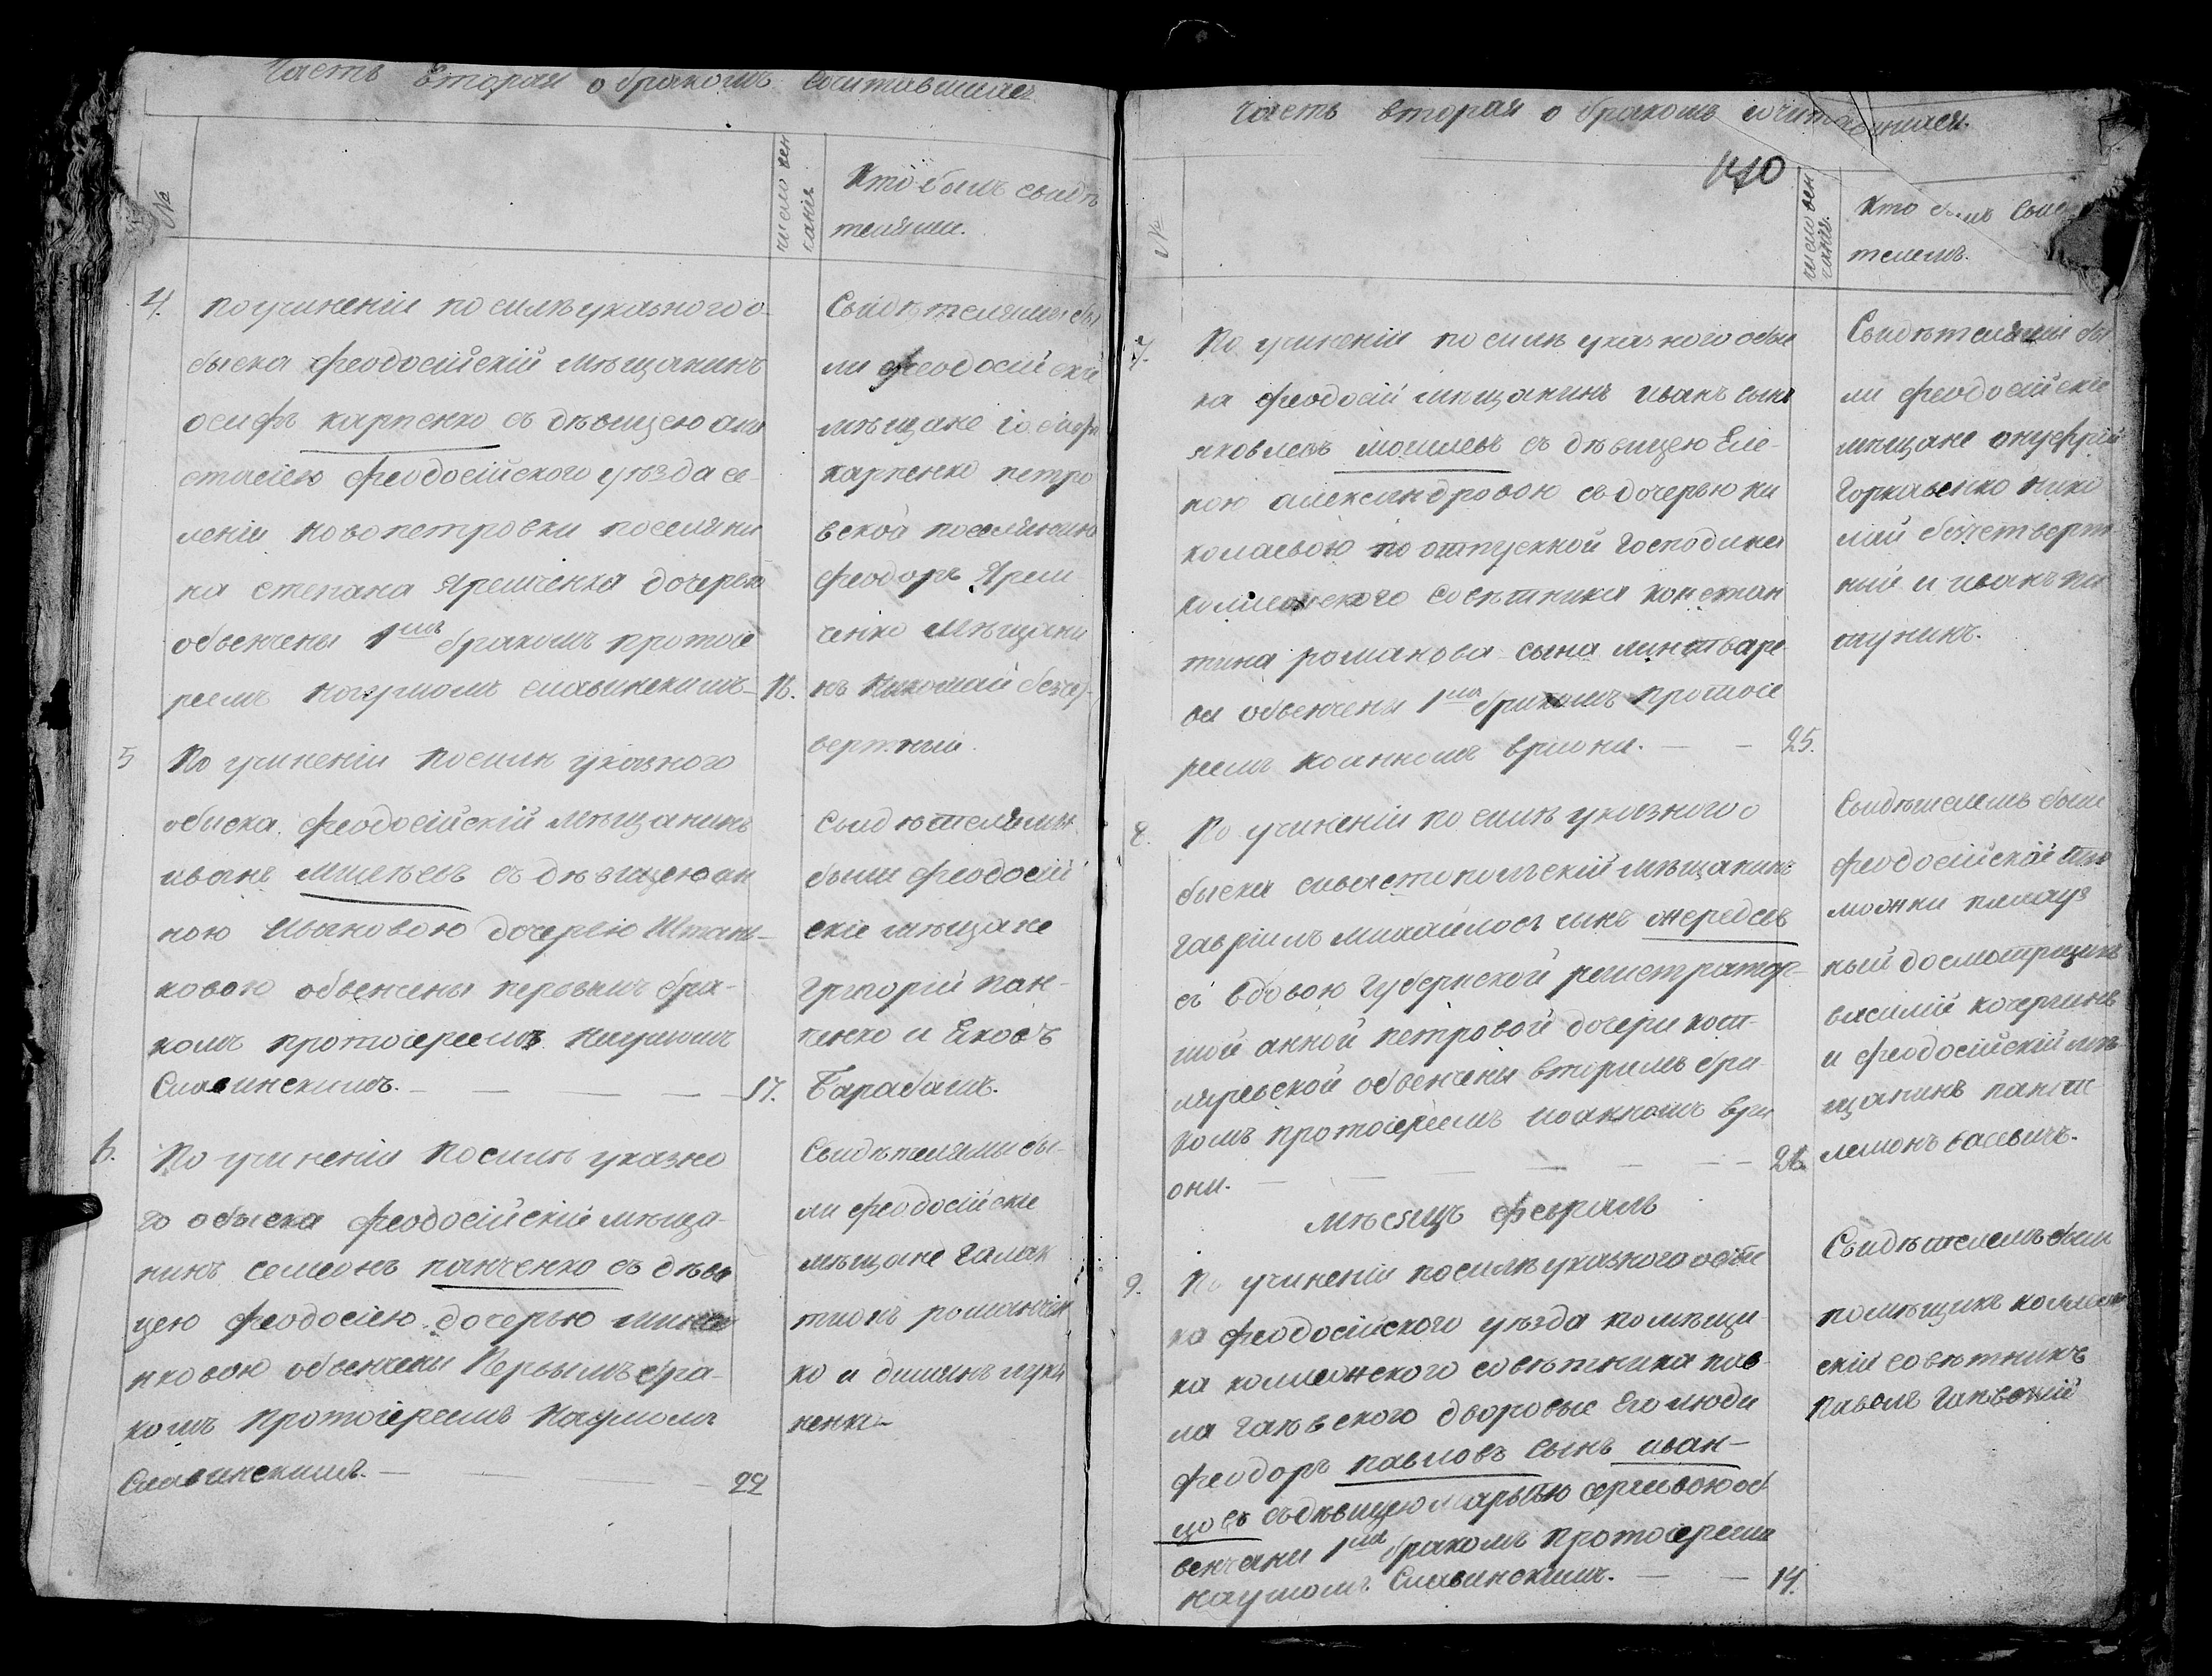 Часть вторая о бракомъ сочитавшихся
№
число вен
чанія
Кто былъ свидѣ
телями.
4. По учиненіи по силѣ указного о-
быска Феодосійскій мѣщанинъ
осифъ карпенко съ дѣвицею ана
стасіею Феодосійского уѣзда се-
ленія новопетровки поселяни
на степана Яремченка дочерью
обвенчены 1мъ бракомъ протоіе
реемъ Наумомъ славинскимъ- 16.
Свидѣтелями бы
ли Феодосійскіе
мѣщане іосифъ
карпенко петро
вской поселянинъ
Феодоръ Ярем
ченко мѣщани
нъ Николай безче
вертний.
5 По учиненіи по силѣ указного
обыска Феодосійскій мѣщанинъ
иванъ съ дѣвицею ан
ною Ивановою дочерью Штань-
ковою обвенчены первымъ бра-
комъ протоіереемъ Наумомъ
Славинскимъ. - 17.
Свидѣтелями
были Феодосій
скіе мѣщане
Григорій Пан-
ченко и Яковъ
Барабашъ.
6. По учиненіи по силѣ указно
го обыска Феодосійскій мѣща-
нинъ семеонъ панченко съ дѣви
цею Феодосіею дочерью
обвенчены Первымъ бра-
комъ Протоіереемъ Наумомъ
Славинскимъ. - 22
Свидѣтелями бы-
ли Феодосійскіе
мѣщане Галак
тионъ романчен
ко и
ненко-
Часть вторая о бракомъ сочитавшихся.
140
№
число вен
чанія.
Кто былъ Свидѣ
телемъ.
7. По учиненіи по силѣ указного обыс
ка Феодосій мѣщанинъ иванъ сынъ
яковлевъ съ дѣвицею Еле-
ною александровою съ дочерью ни
колаевою по отпускной Господина
колежского совѣтника констан
тина романова сына
ва обвенчены 1мъ бракомъ протоіе
реемъ иоанномъ вриони. - 25.
Свидѣтелями бы
ли Феодосійскіе
мѣщане онуфрій
Горкавенко нико
лай безчетверт
ний и иванъ
8. По учиненіи по силѣ указного о
быска сивастопольскій мѣщанинъ
гавріилъ михайловъ сынъ
съ вдовою Губернской регистратор-
шой анной петровой дочери кот-
ляревской обвенчены вторымъ бра
комъ протоіереемъ иоанномъ ври
они. - 26.
Свидѣтелемъ были
Феодосійской та
можни пакгауз
ный досмотрщикъ
василій кочергинъ
и Феодосійскій мѣ
щанинъ панте
леіонъ
мѣсяцъ Февраль
9. По учиненіи по силѣ указного обыс
ка Феодосійского уѣзда помѣщи
ка колежского совѣтника пав-
ла гаевского дворовые Его люди
Феодоръ павловъ сынъ иван-
цовъ съ дѣвицею марьею сергиевою об
венчаны 1мъ бракомъ протоіереемъ
наумомъ Славинскимъ. - 14.
Свидѣтелемъ были
помѣщикъ колежс
скій совѣтникъ
Павелъ Гаевский